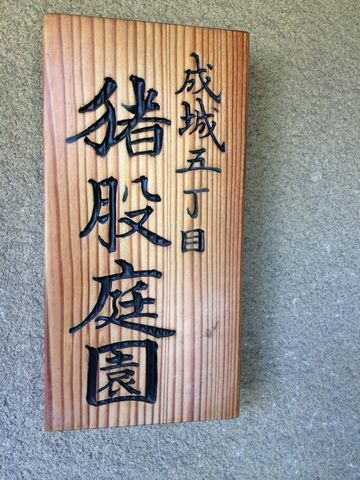 成城五丁目
猪股庭園